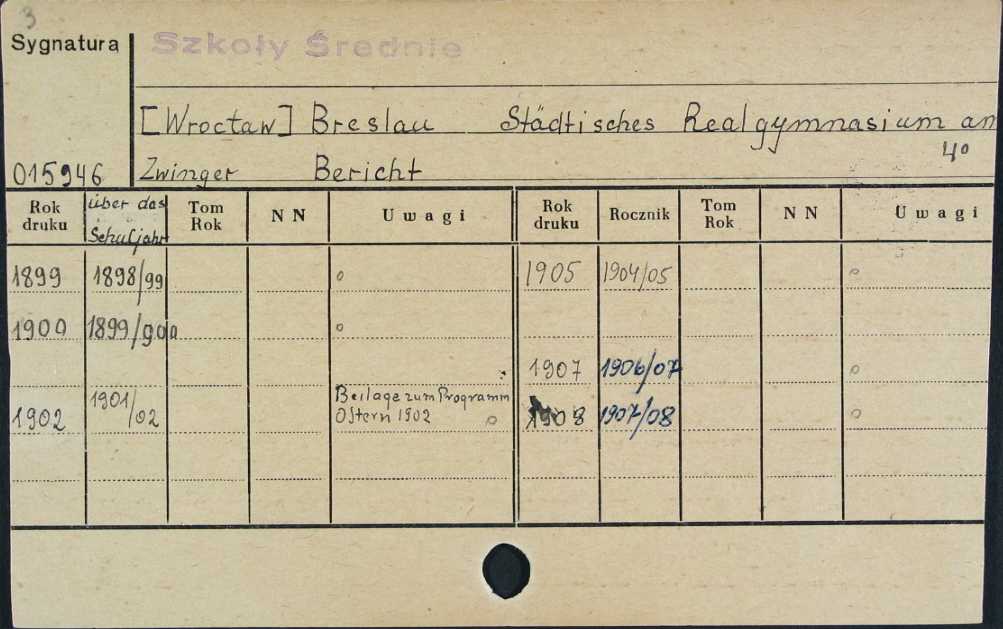 3
Sygnatura Szkoły Średnie
[Wrocław] Breslau Städtisches Realgymnasium am
4°
015946 Zwinger Bericht
Rok druku über das Schuljahr Tom Rok NN Uwagi Rok druku Rocznik Tom Rok NN Uwagi
1899 1898/99 ° 1905 1904/05 °
1900 1899/900 °
1907 1906/07 °
1902 1901/02 Beilage zum Programm Ostern 1902 ° 1908 1907/08 °